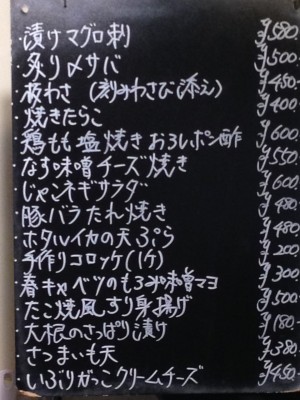 漬けマグロ刺 ¥580
炙り〆サバ ¥500
板わさ（刻みわさび添え） ¥450
焼きたらこ ¥400
鶏もも塩焼きおろしポン酢 ¥600
なす味噌チーズ焼き ¥550
じゃこネギサラダ ¥600
豚バラたれ焼き ¥480
ホタルイカの天ぷら ¥480
手作りコロッケ(1ケ) ¥200
春キャベツのもろみ味噌マヨ ¥300
たこ焼風すり身揚げ ¥500
大根のさっぱり漬け ¥180
さつまいも天 ¥380
いぶりがっこクリームチーズ ¥450